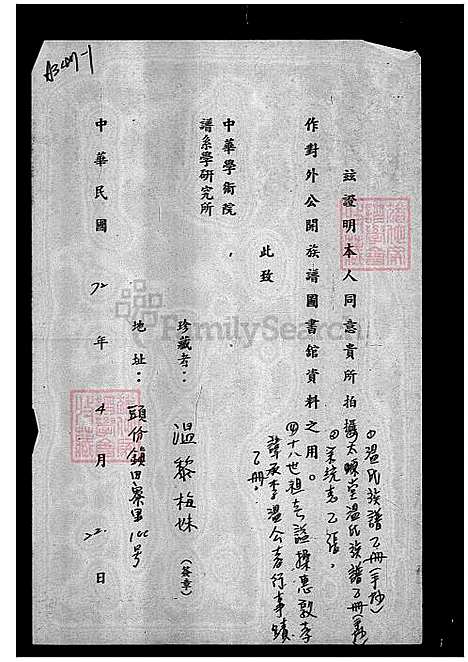 A3407-1
玆證明本人同意貴所拍攝太原堂溫氏族譜乙冊
(1)溫氏族譜乙冊(手抄)
系統表乙張。
作對外公開族譜圖書館資料之用。
(4)十八世祖
諱承李溫公者行事蹟
乙冊。
此致
中華學術院
譜系學研究所
珍藏者：溫黎梅妹(簽章)
地址：頭份鎮田寮里
中華民國72年4月22日
FamilySearch